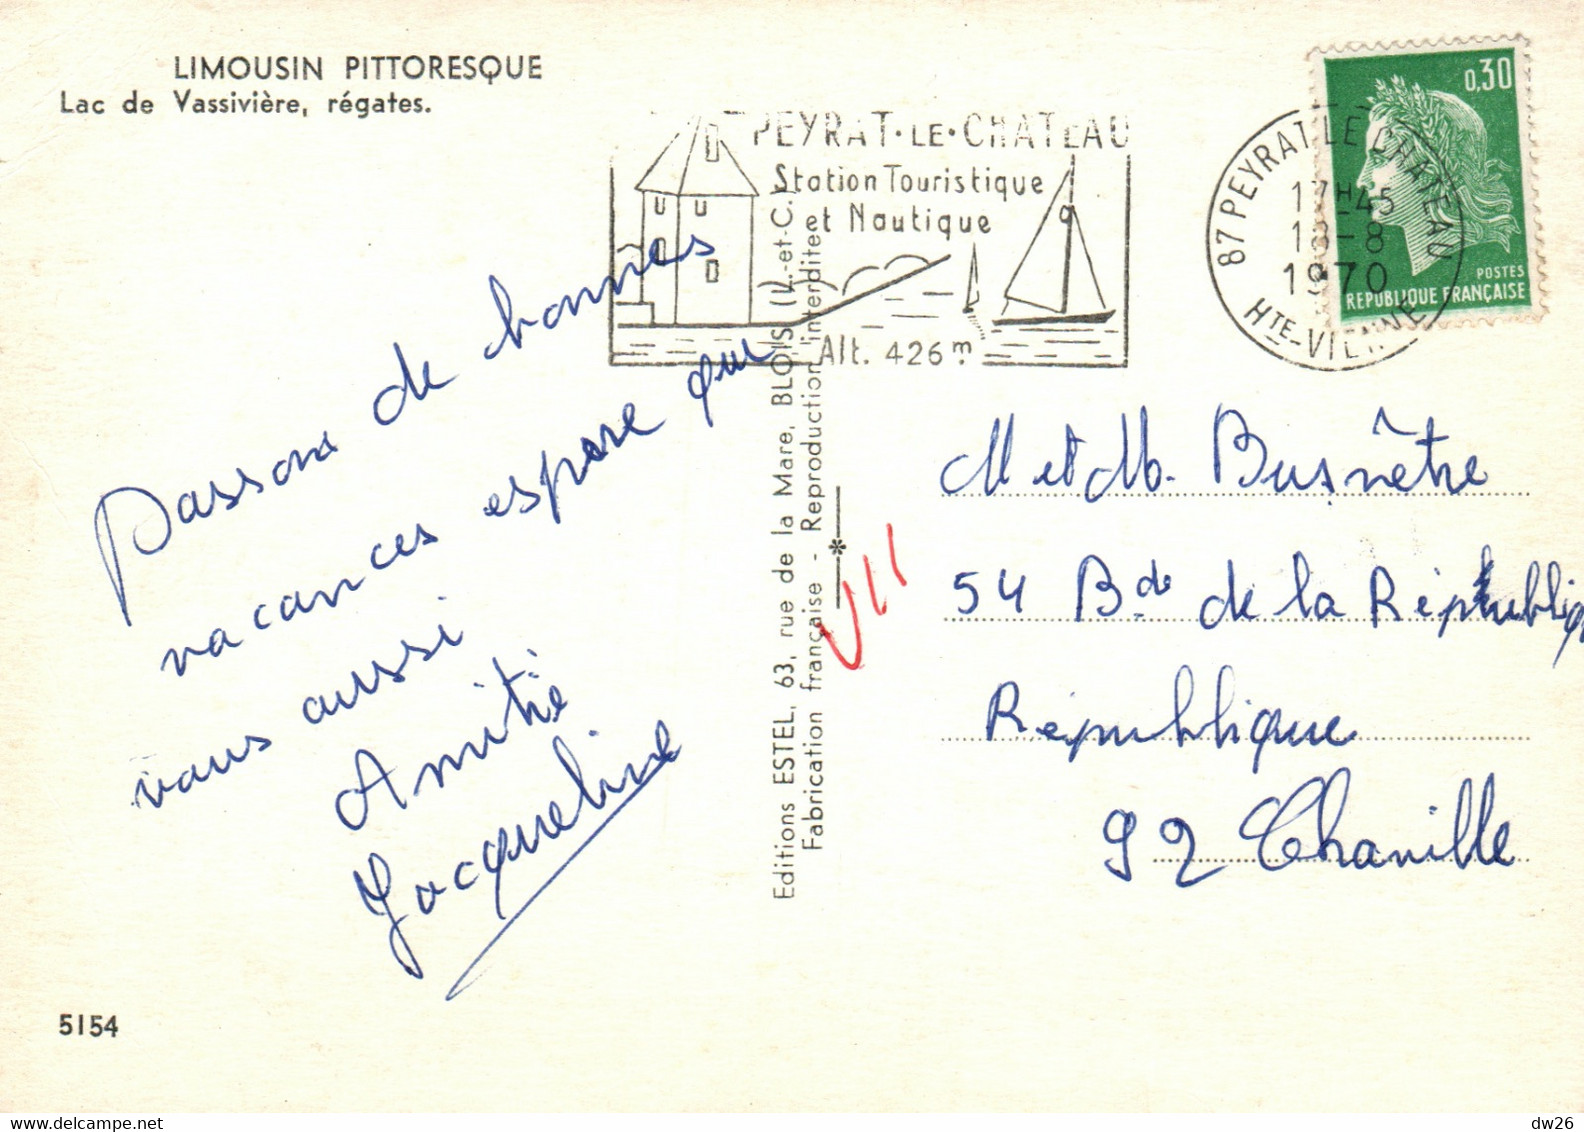 LIMOUSIN PITTORESQUE
Lac de Vassivière, régates.
PEYRAT-LE-CHATEAU
Station Touristique
et Nautique
Alt. 426 m.
87 PEYRAT LE CHATEAU
17H45
18-8
1970
HTE-VIENNE
0,30
POSTES
REPUBLIQUE FRANÇAISE
Passons de bonnes
vacances espere que
vous aussi
Amitié
Jacqueline
Editions ESTEL, 63, rue de la Mare, BLOIS (L.-et-C.)
Fabrication française - Reproduction interdite
M et M. Busnêtre
54 Bd de la République
République
92 Chaville
5154
dw26